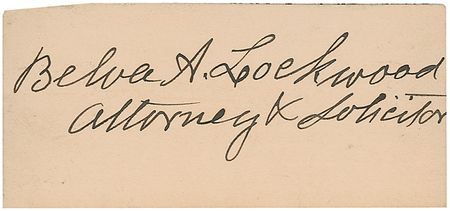 Belva A. Lockwood
Attorney & Solicitor